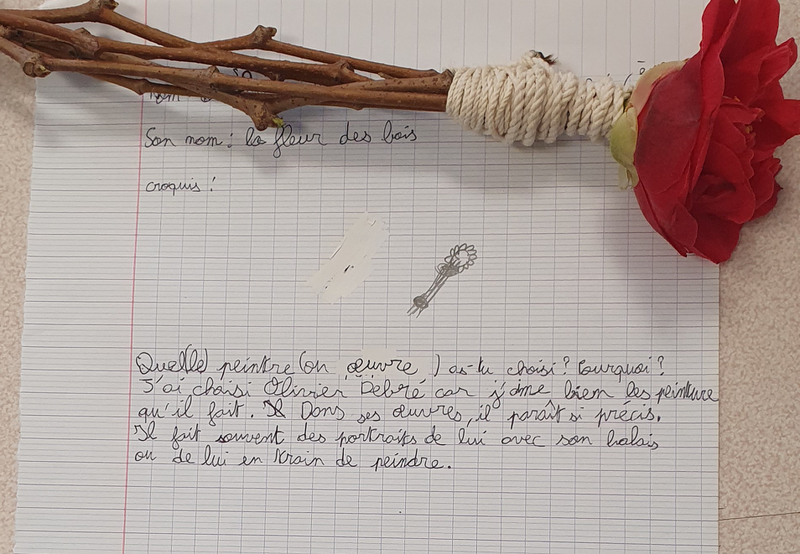 Nom :
Son nom : la fleur des bois
croquis :
Quel(le) peintre (ou œuvre ) as-tu choisi ? Pourquoi ?
J'ai choisi Olivier Debré car j'ame biem les peinture
qu'il fait. Dans ses œuvres, il paraît si précis.
Il fait souvent des portraits de lui avec son balais
ou de lui en train de peindre.